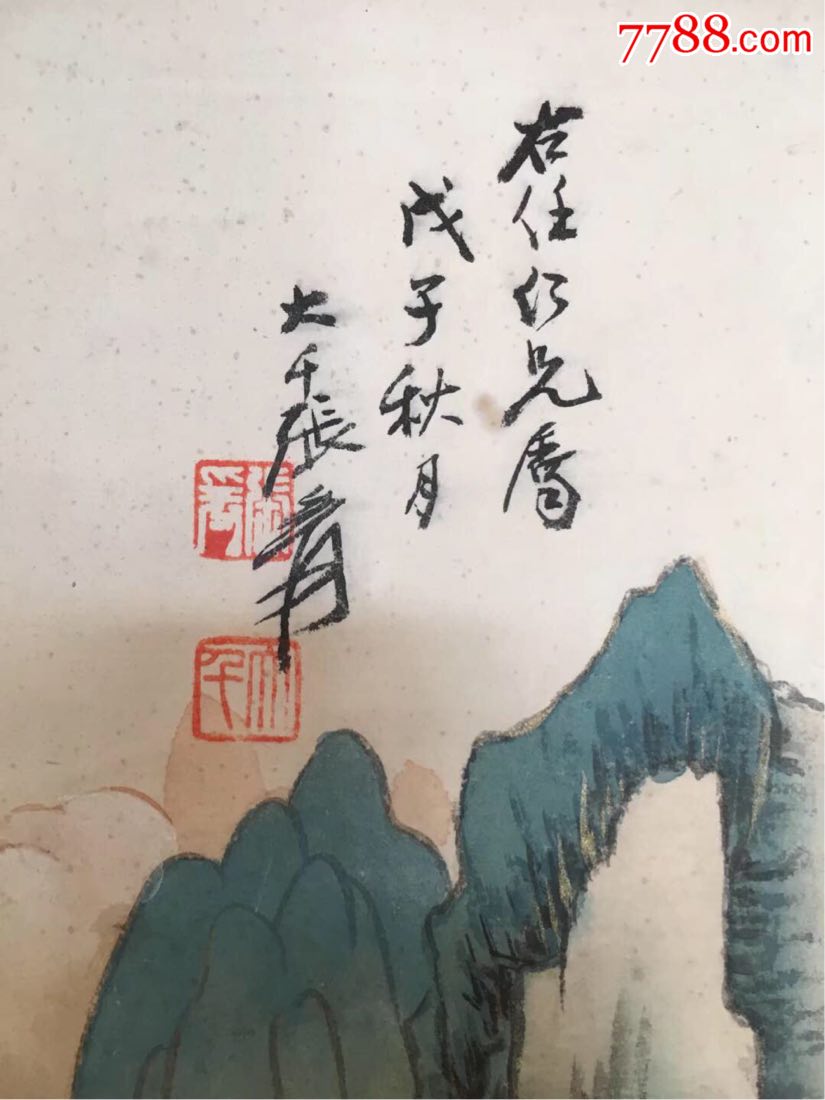 7788.com
右任仁兄
戊子秋月
大千張爰
張爰
大千